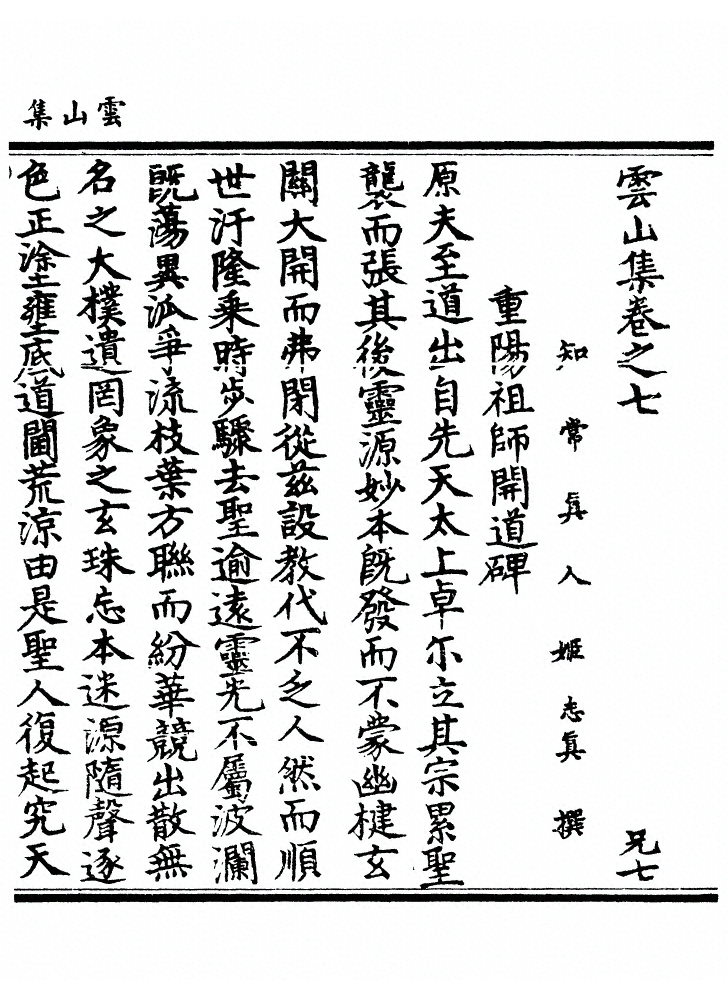 雲山集
雲山集卷之七
兄七
知常眞人姬志眞撰
重陽祖師開道碑
原夫至道出自先天太上卓尓立其宗累聖
襲而張其後靈源妙本旣發而不蒙幽楗玄
關大開而弗閉從茲設教代不乏人然而順
世汙隆乘時步驟去聖逾遠靈光不屬波瀾
旣蕩異派爭流枝葉方聯而紛華競出散無
名之大樸遺罔象之玄珠忘本迷源隨聲逐
色正塗壅底道閫荒涼由是聖人復起究天